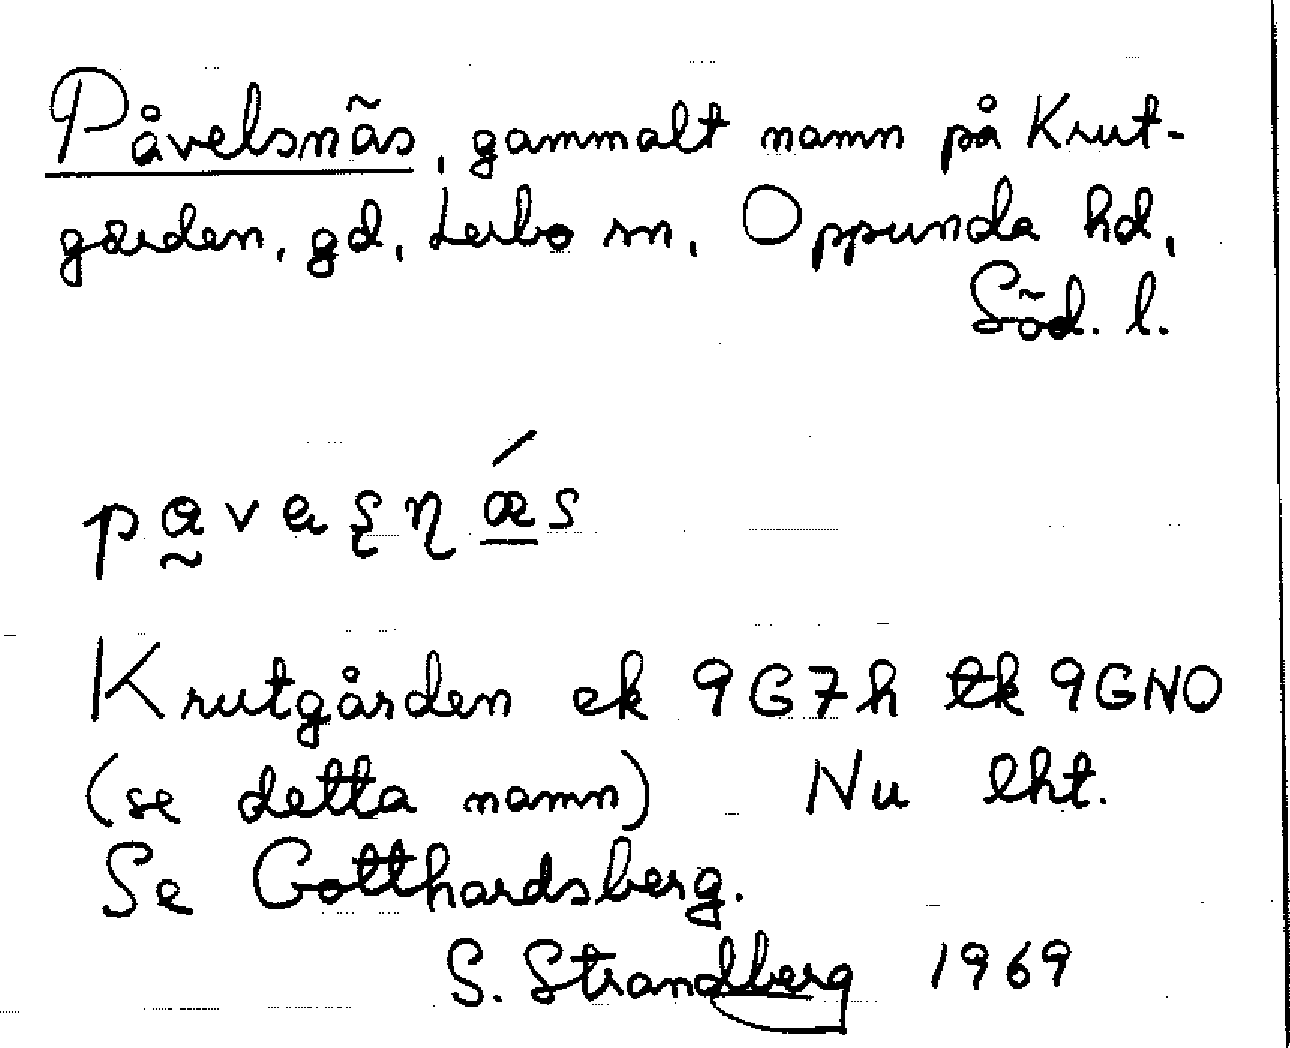 Påvelsnäs, gammalt namn på Krut-
gården, gd, Lerbo sn, Oppunda hd,
Söd. l.
Krutgården ek 9G7h tk 9GNO
(se detta namn) Nu lht.
Se Gotthardsberg.
S. Strandberg 1969